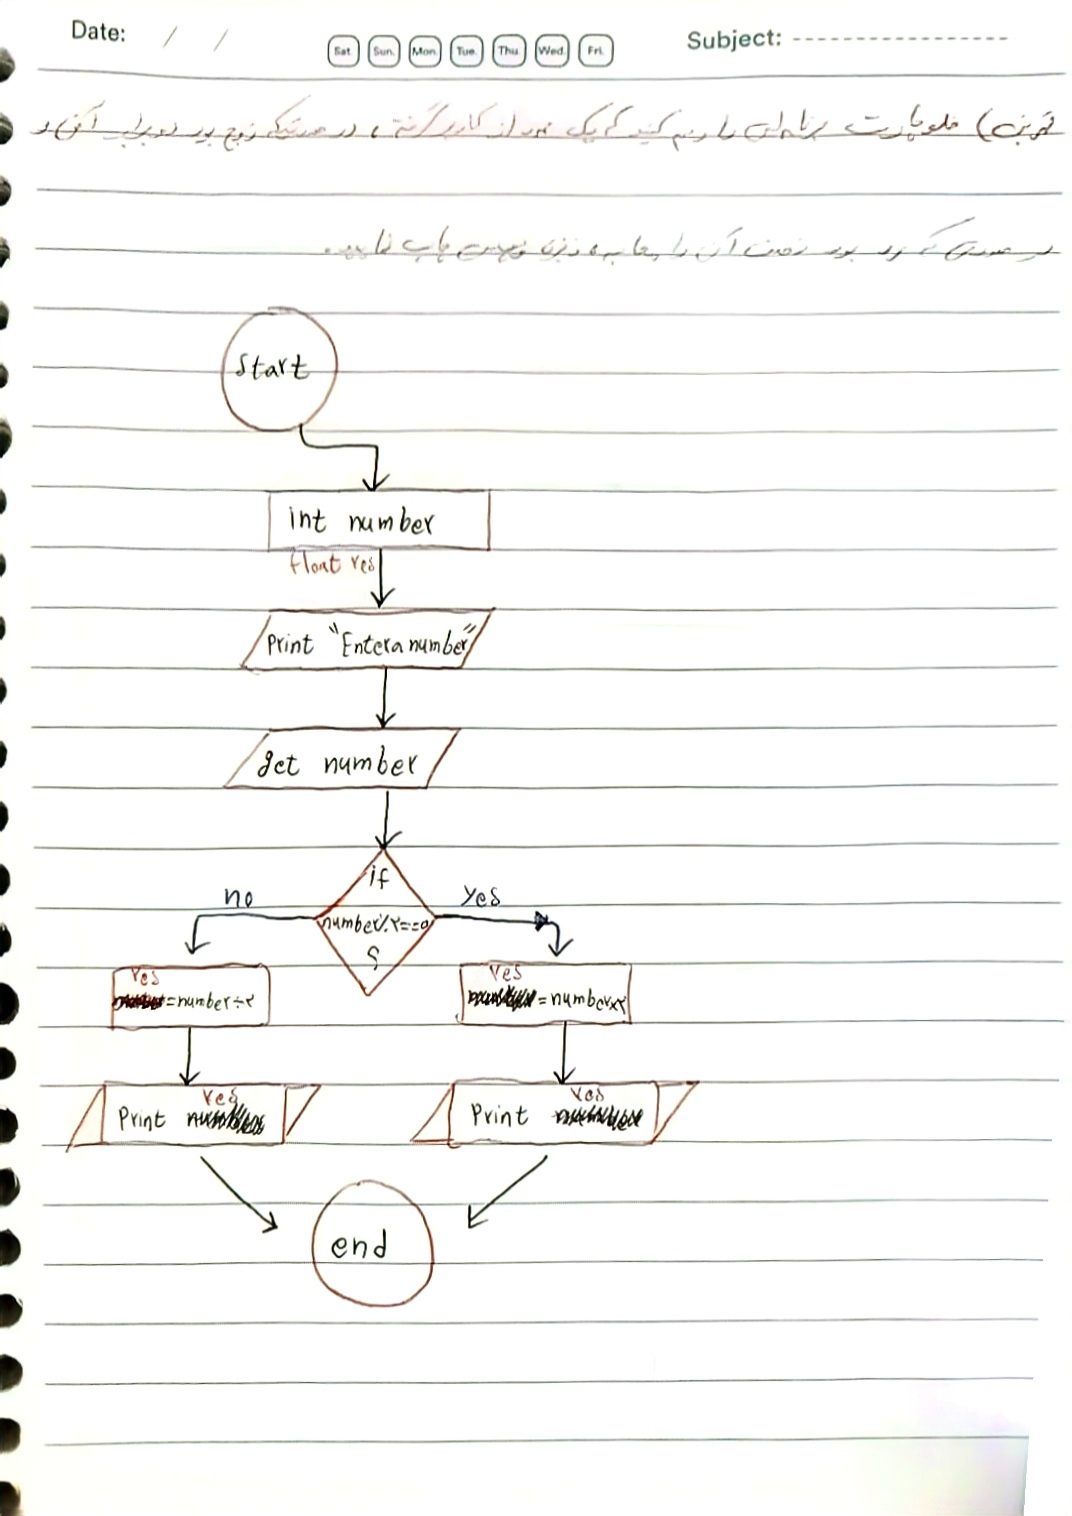 Date: / / Sat Sun. Mon. Tue. Thu Wed. Fri. Subject:
تمرین) فلوچارت برنامه‌ای را رسم کنید که یک عدد از کاربر گرفته، در صورتیکه زوج بود دو برابر آن و
در صورتی که فرد بود نصف آن را محاسبه و چاپ نمایید.
Start
int number
float res
Print "Enter a number"
get number
if
no yes
number%۲==۰
?
res res
=number÷۲ =number×۲
res res
Print Print
end